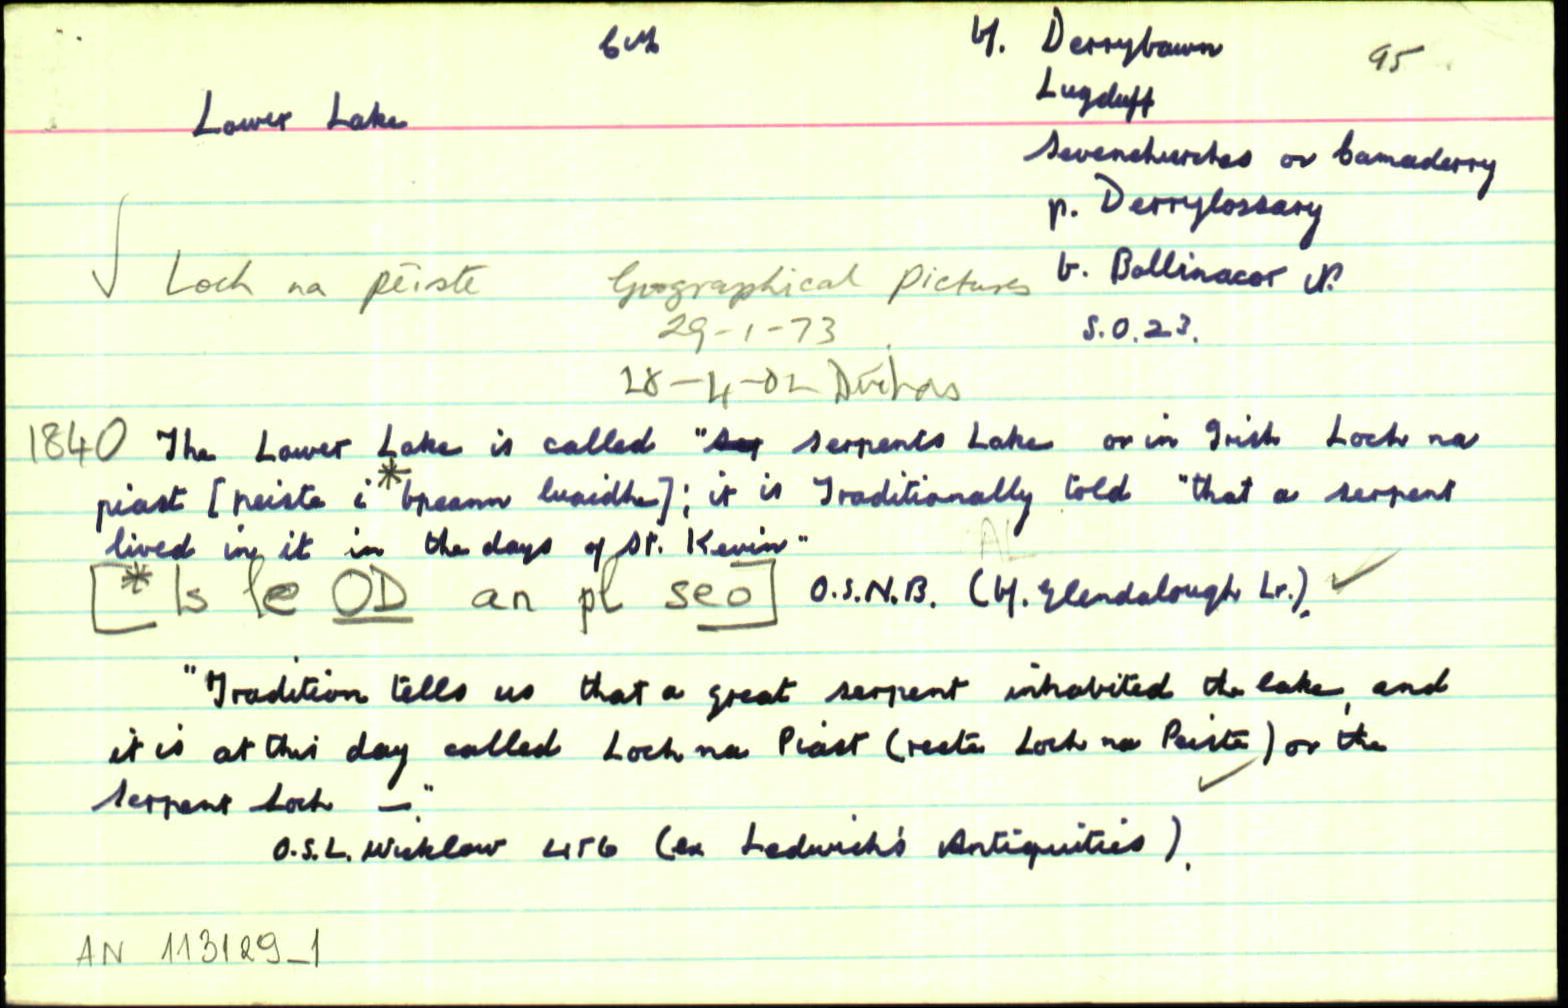 6" bf. Derrybawn 95
Lugduff
Lower Lake
Sevenchurches or Camaderry
p. Derrylossary
Loch na péiste Geographical Pictures b. Ballinacor N.
29-1-73 S.O.23.
28-4-02 Dúchas
1840 The Lower Lake is called "Serpents Lake or in Irish Loch na
piast [peiste i *bpeann luaidhe]; it is Traditionally told "that a serpent
lived in it in the days of St. Kevin"
AL
[* Is le OD an pl seo] O.S.N.B. (bf. Glendalough Lr.).
"Tradition tells us that a great serpent inhabited the lake, and
it is at this day called Loch na Piast (recte Loch na Peiste) or the
Serpent Loch —."
O.S.L. Wicklow 456 (ex Ledwich's Antiquities).
AN 113129_1